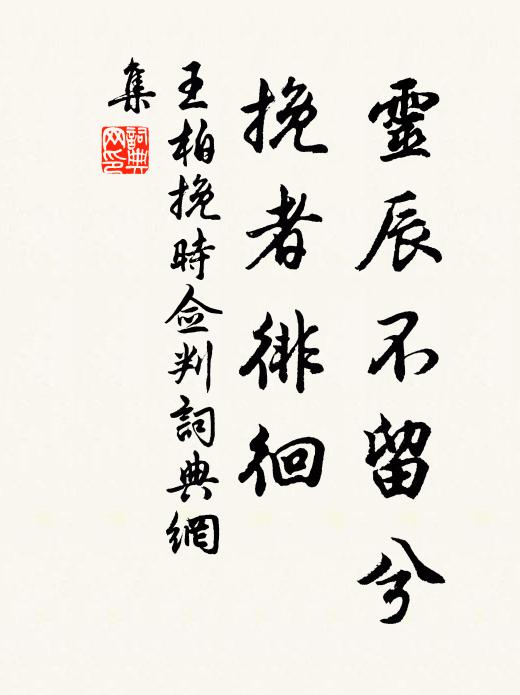 靈辰不留兮
挽者徘徊
王柏挽時僉判詞典網
集
詞典網印